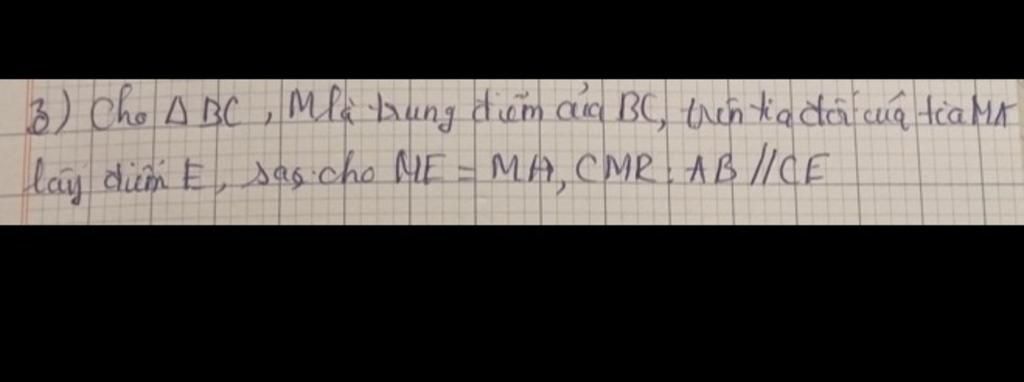 3) Cho Δ BC, M là trung điểm của BC, trên tia đối của tia MA
lấy điểm E, sao cho ME = MA, CMR: AB // CE